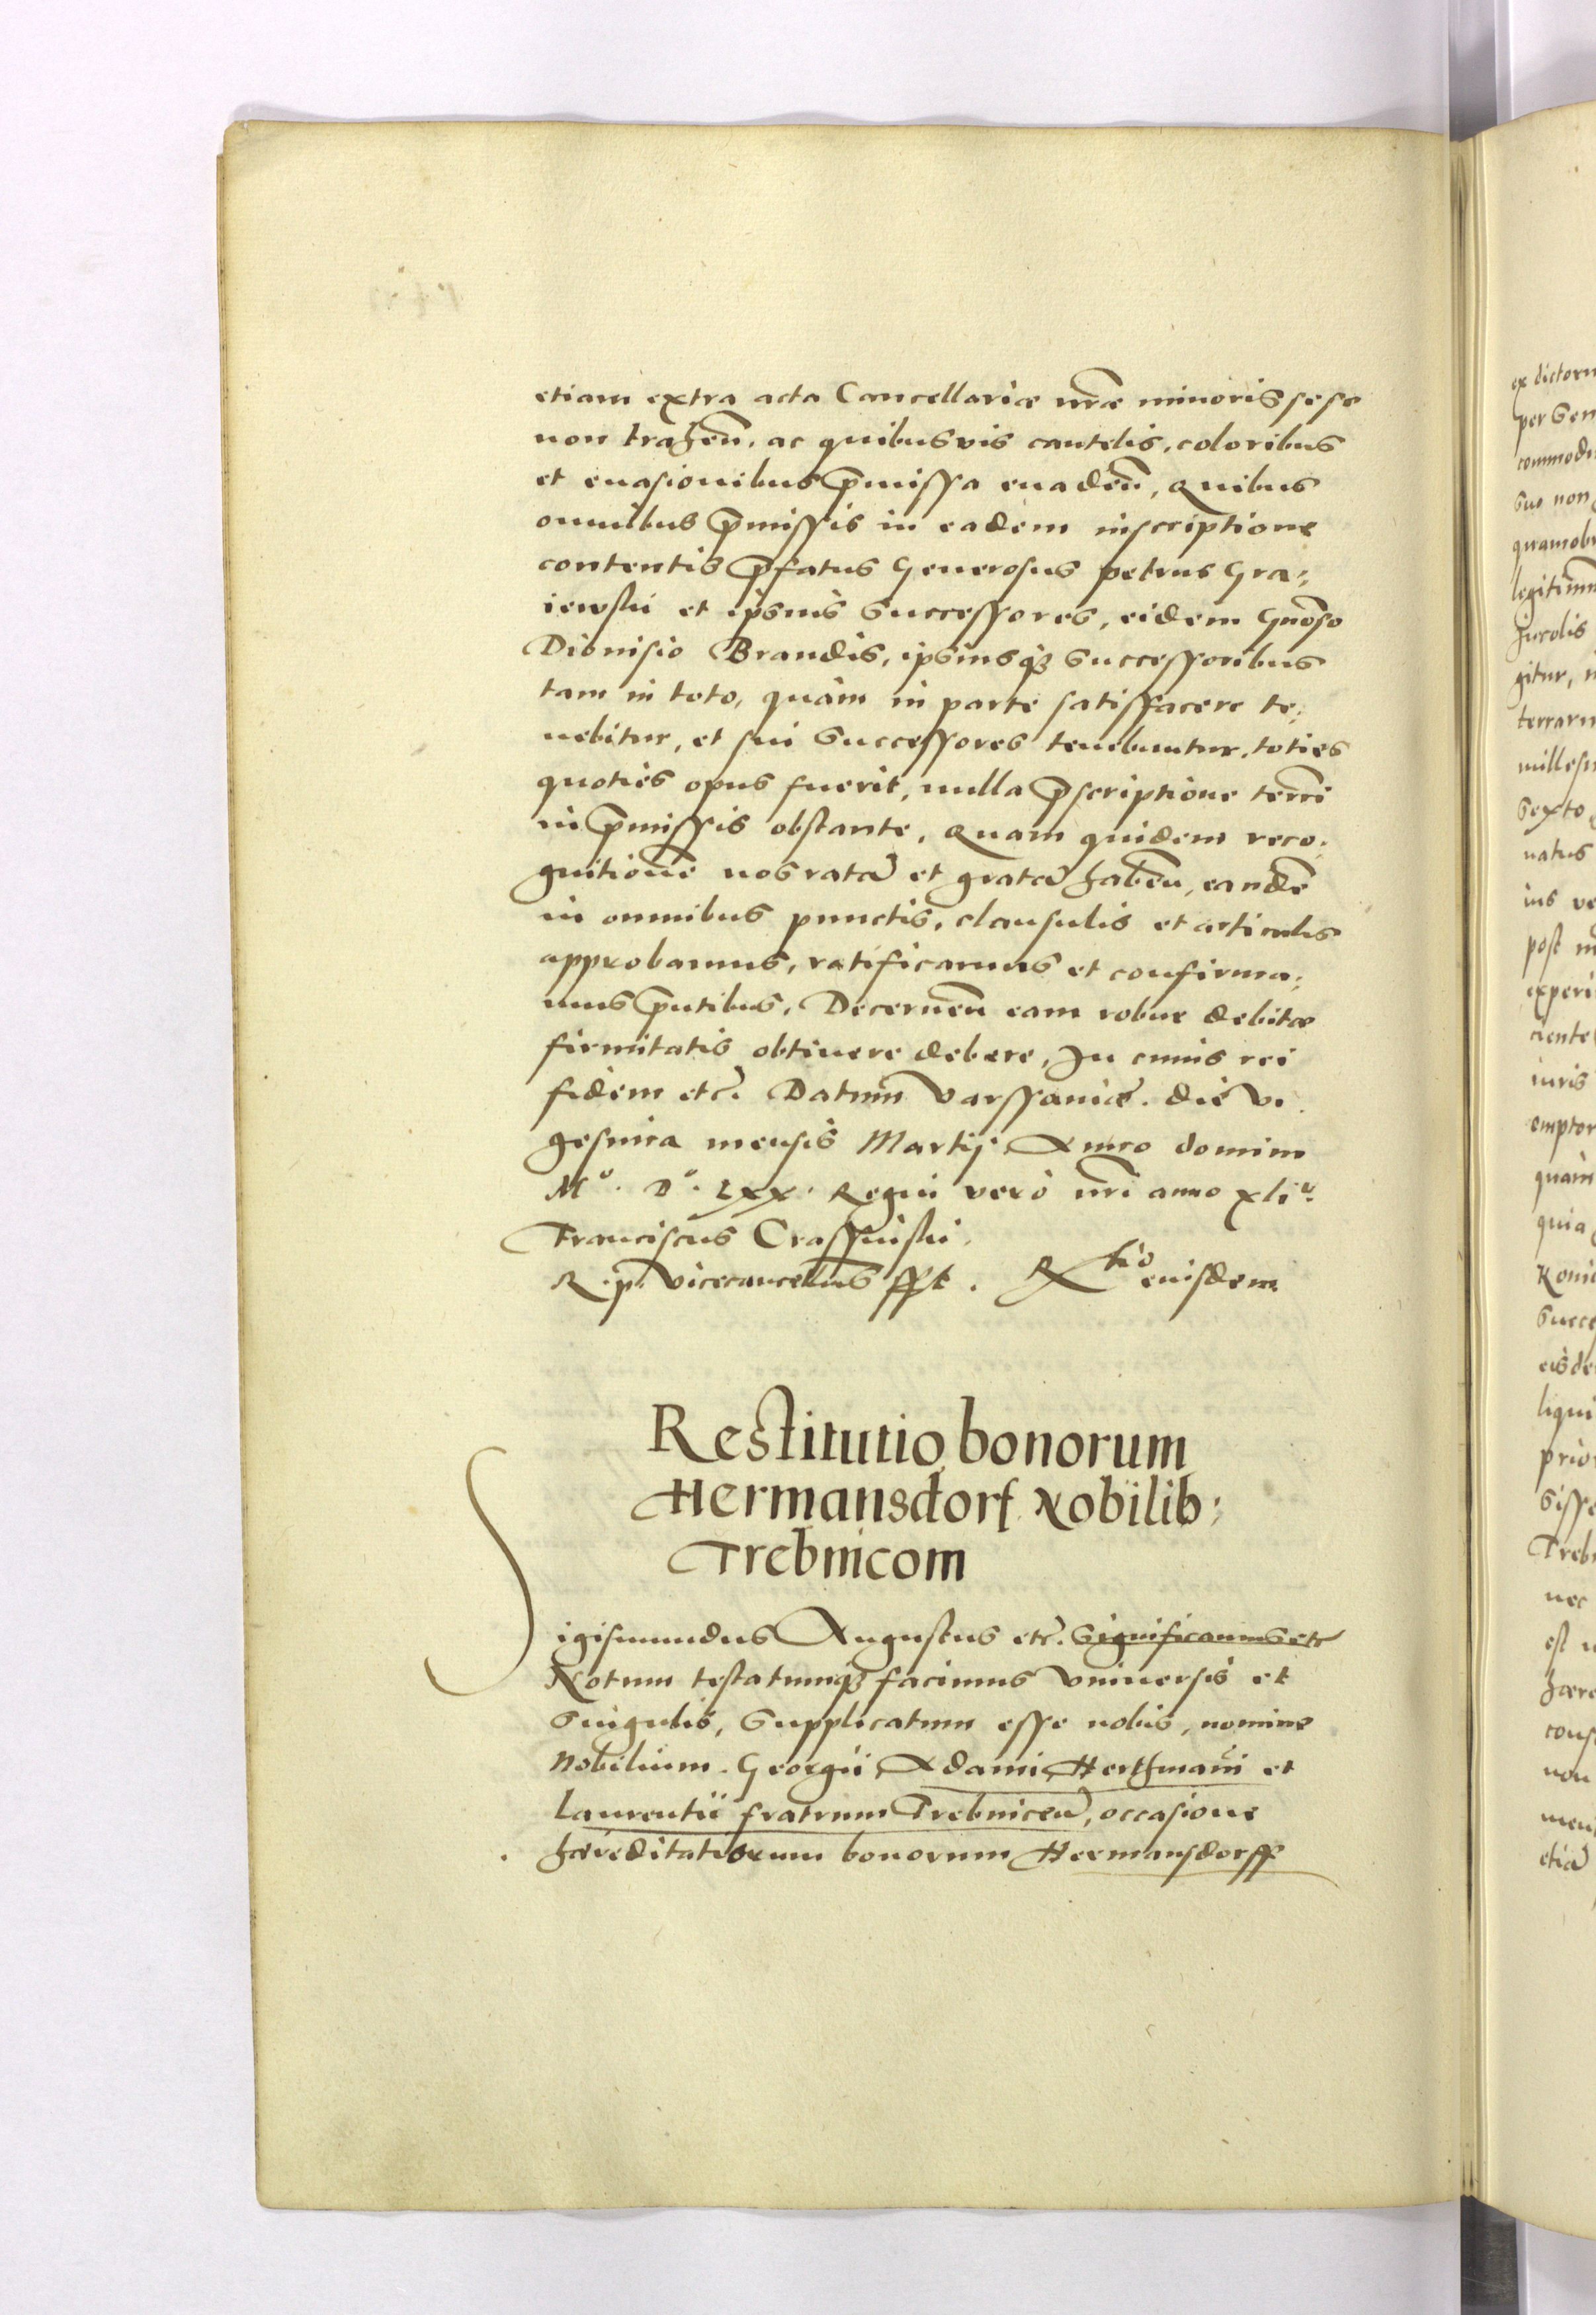 etiam extra acta Cancellariæ nr̃æ minoris sese
non trahen̄. ac quibusvis cautelis, coloribus
et euasionibus p̄missa euaden̄, Quibus
omnibus p̄missis in eadem inscriptione
contentis p̄fatus Generosus petrus Gra:
iewski et ipsius Successores, eidem Gn̄oso
Dionisio Brandis, ipsiusqȝ Successoribus
tam in toto, quàm in parte satisfacere te:
nebitur, et sui Successores tenebuntur. toties
quoties opus fuerit, nulla p̄scriptione terr̃i
in p̄missis obstante. Quam quidem reco:
gnitionē nos ratā et gratā haben̄, eandē
in omnibus punctis, clausulis et articulis
approbamus, ratificamus et confirma:
mus p̄ntibus. Decernen̄ eam robur debitæ
firmitatis obtinere debere, In cuius rei
fidem etc̃. Datum Varssauiæ. die vi
gesima mensis Martij Anno domini
Mº. Dº. Lxx. Regni verò nr̃i anno xli.º
Franciscus Crassinski.
R. p. vicecancellus sst. Rtio eiusdem.
Restitutio bonorum
Hermansdorf Nobilib:
Trebnicom
Sigismundus Augustus etc̃. Significamus etc
Notum testatumqȝ facimus Vniuersis et
Singulis, Supplicatum esse nobis, nomine
Nobilium. Georgii Adami, Herthmañi et
Laurentii fratrum Trebniceñ, occasione
hæreditatiorum bonorum Hermansdorff
ex dictoru
per Gen
commodu
suo non
quamobr
legitimu
Incolis
gitur, i
terraru
millesi
Sexto
natus
ius ve
post m
experi
ciente
iuris
emptor
quàm
quia
Konic
Succe
eisde
liqui
prior
Sisse
Trebn
nec
est
hære
cons
non
men
etiā